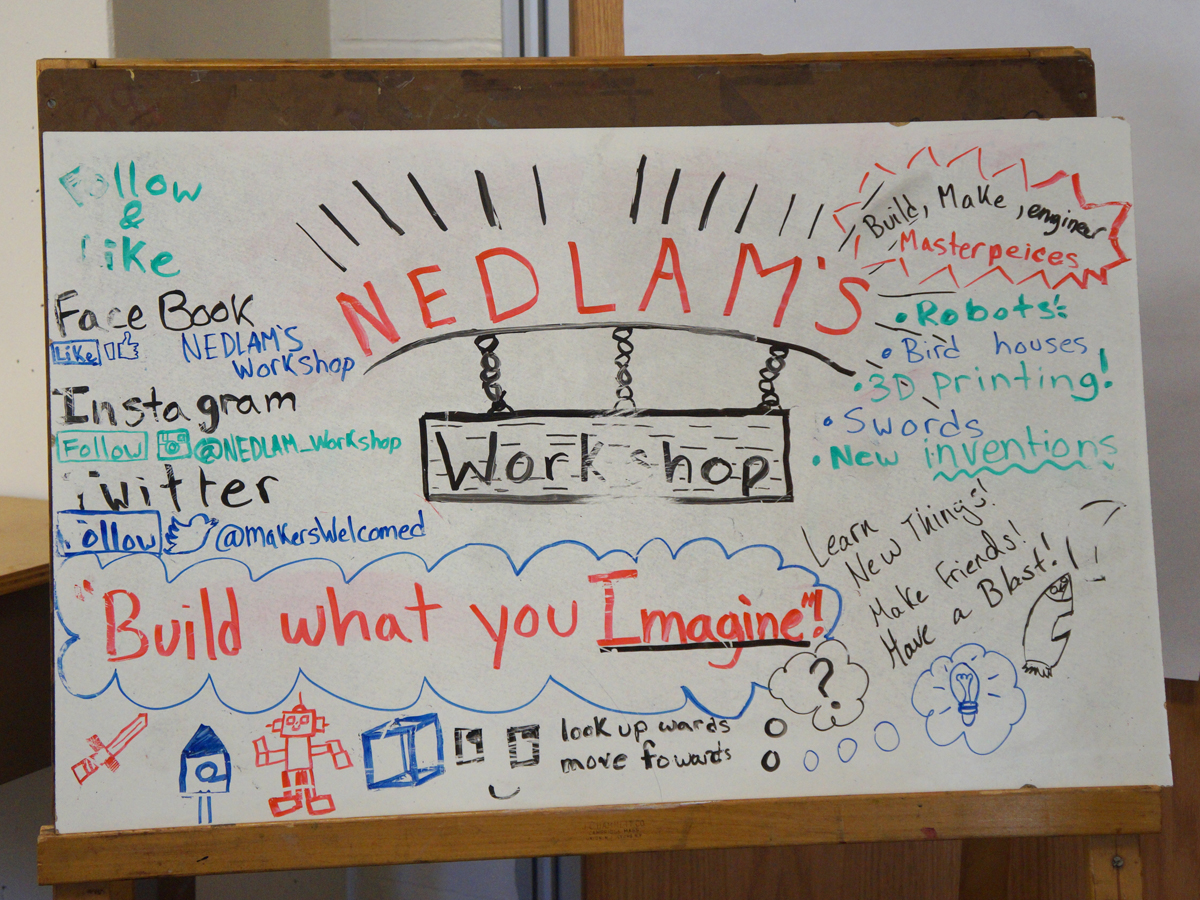 Follow
&
Like
FaceBook
Like NEDLAM'S
Workshop
Instagram
Follow @NEDLAM_Workshop
Twitter
Follow @makersWelcomed
NEDLAM'S
Workshop
Build, Make, engineer
Masterpeices
• Robots:
• Bird houses
• 3D printing!
• Swords
• New inventions
Learn
New Things!
Make Friends!
Have a Blast!
"Build what you Imagine"!
?
look up wards
move fowards